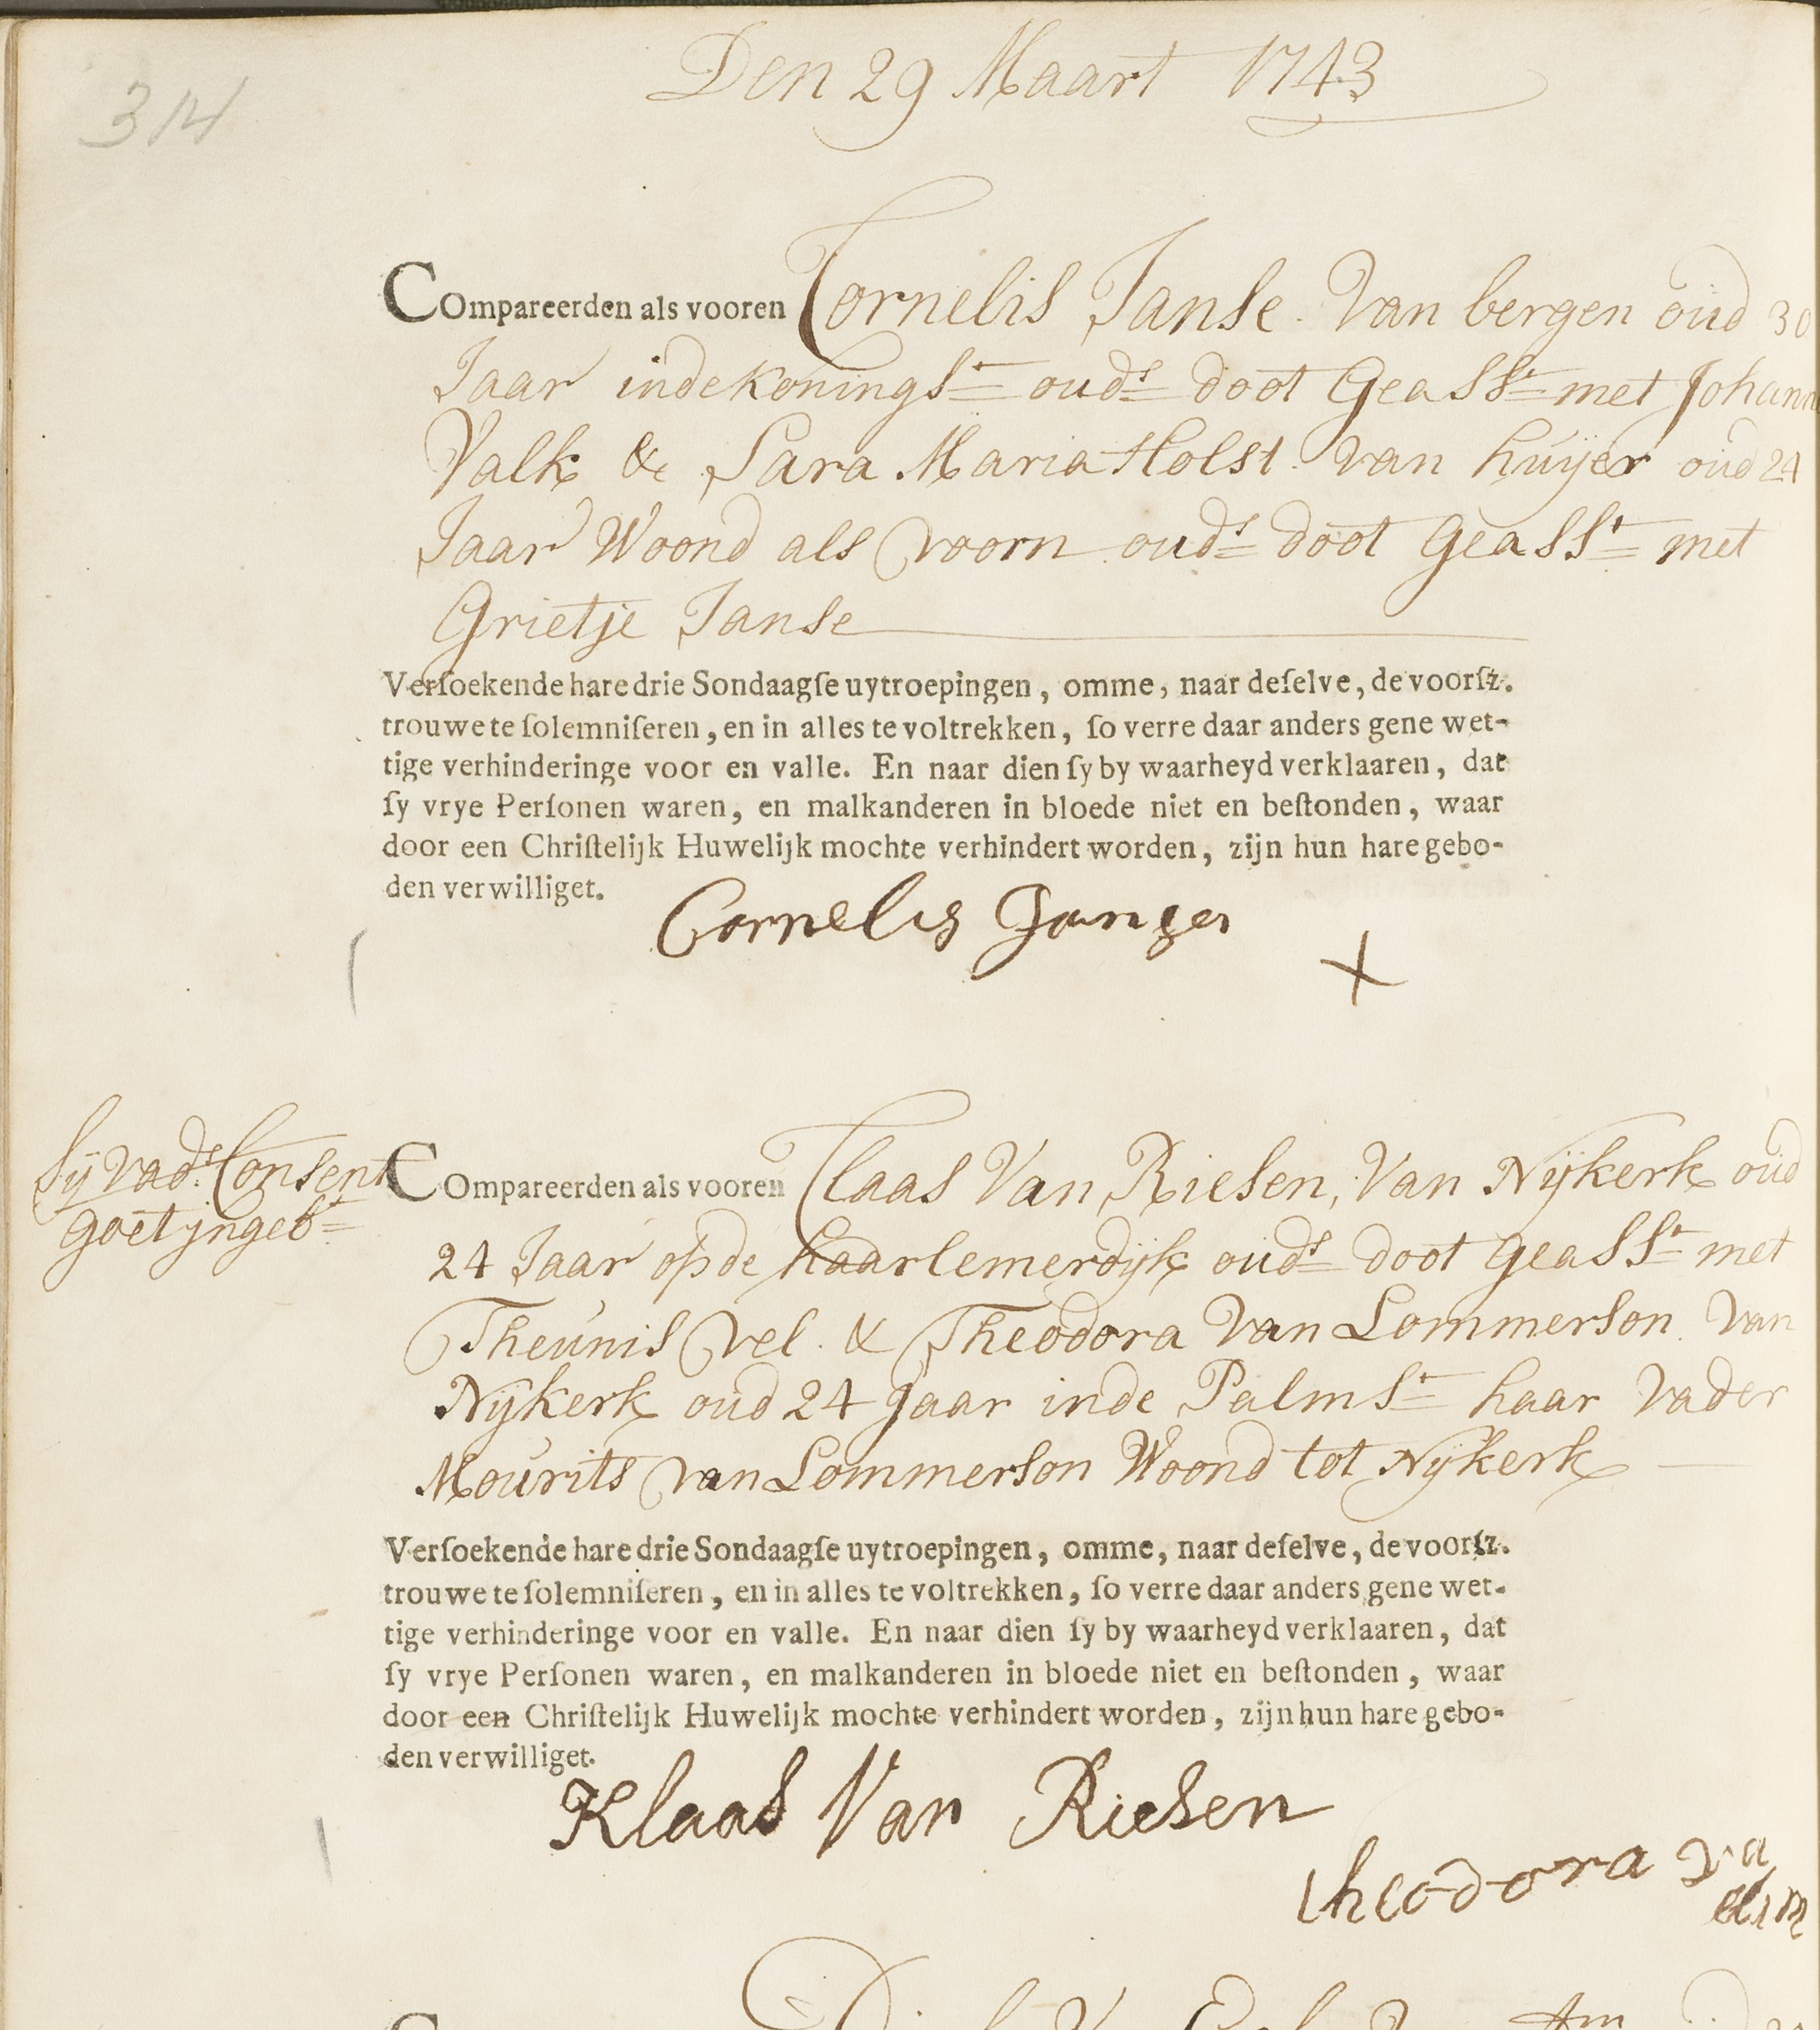 314
Den 29 Maart 1743
Compareerden als vooren Cornelis Janse van bergen oud 30
Jaar inde Konings^t oud^s doot Geass^t met Johann
Valk & Sara Maria Holst van huijer oud 24
Jaar Woond als voorn oud^s doot geass^t met
Grietje Janse
Verſoekende hare drie Sondaagſe uytroepingen, omme, naar deſelve, de voorſz.
trouwe te ſolemniſeren, en in alles te voltrekken, ſo verre daar anders gene wet-
tige verhinderinge voor en valle. En naar dien ſy by waarheyd verklaaren, dat
ſy vrye Perſonen waren, en malkanderen in bloede niet en beſtonden, waar
door een Chriſtelijk Huwelijk mochte verhindert worden, zijn hun hare gebo-
den verwilliget.
Cornelis Janzen
X
Sij vad^s Consent
goet jngeb^t
Compareerden als vooren Claas Van Riesen, Van Nijkerk oud
24 Jaar op de haarlemerdijk oud^s doot geass^t met
Theunis vel & Theodora van Lommerson van
Nijkerk oud 24 Jaar inde Palms^t haar vader
Mourits van Lommerson Woond tot Nijkerk
Verſoekende hare drie Sondaagſe uytroepingen, omme, naar deſelve, de voorſz.
trouwe te ſolemniſeren, en in alles te voltrekken, ſo verre daar anders gene wet-
tige verhinderinge voor en valle. En naar dien ſy by waarheyd verklaaren, dat
ſy vrye Perſonen waren, en malkanderen in bloede niet en beſtonden, waar
door een Chriſtelijk Huwelijk mochte verhindert worden, zijn hun hare gebo-
den verwilliget.
Klaas Van Riesen
theodora va